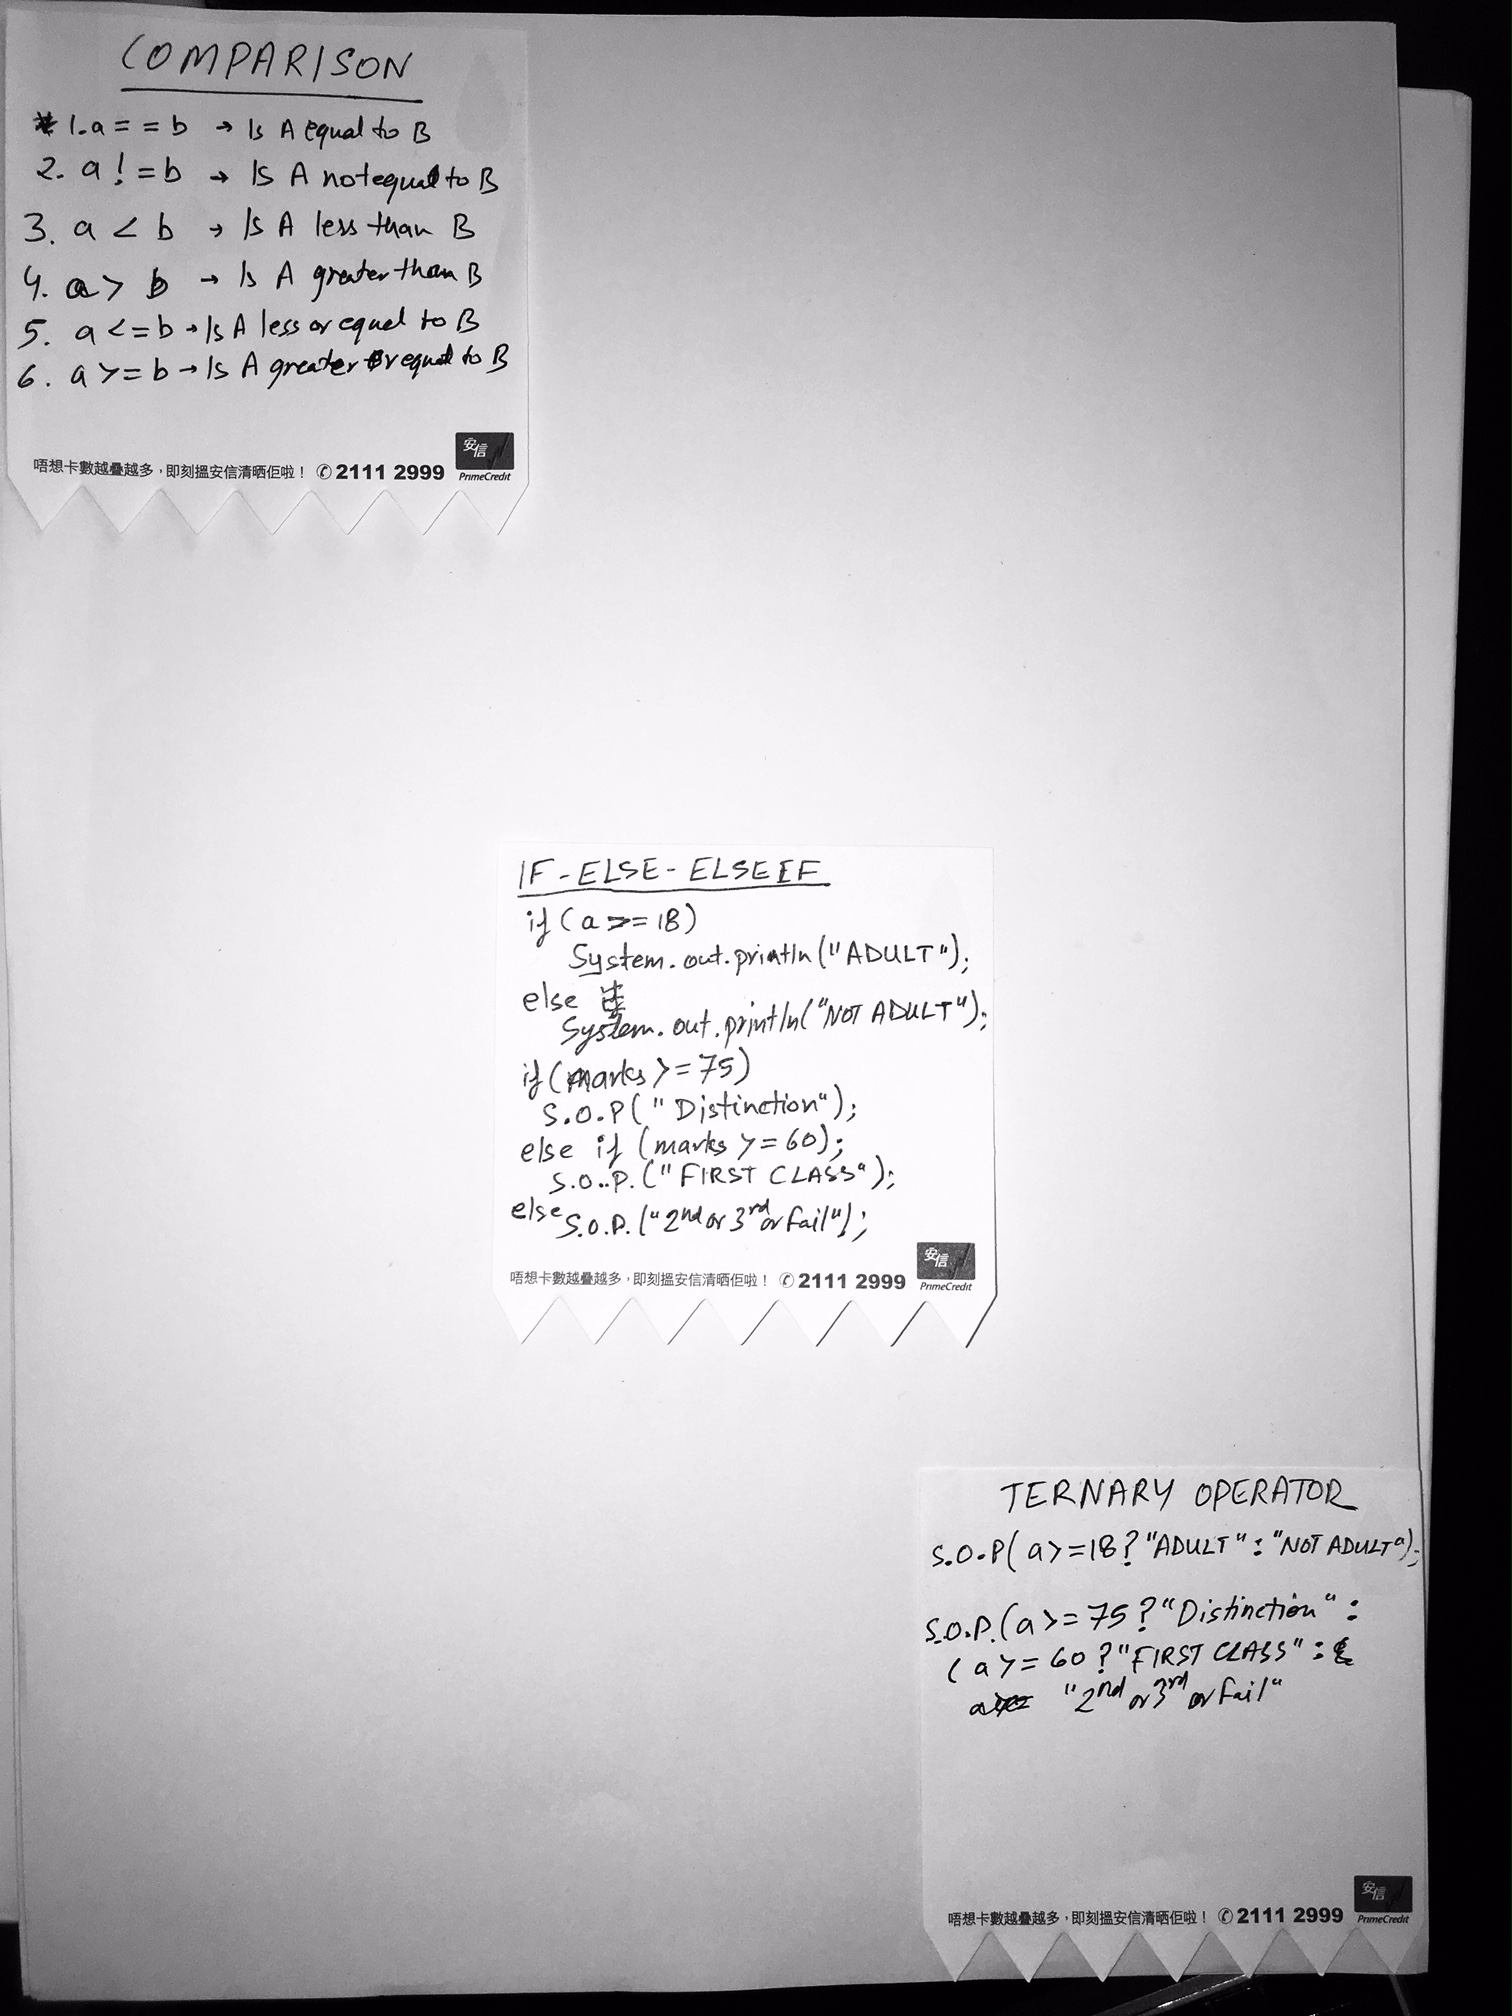 COMPARISON
* 1. a = = b → Is A Equal to B
2. a != b → IS A not equal to B
3. a < b → IS A less than B
4. a > b → Is A greater than B
5. a <= b → Is A less or equal to B
6. a >= b → Is A greater or equal to B
安信
唔想卡數越疊越多，即刻搵安信清晒佢啦！ ✆ 2111 2999 PrimeCredit
IF - ELSE - ELSE IF
if ( a >= 18)
System.out.println ("ADULT");
else
System.out.println("NOT ADULT");
if (marks >= 75)
S.O.P(" Distinction");
else if (marks >= 60);
S.O..P. (" FIRST CLASS");
else S.O.P. ("2nd or 3rd or Fail");
安信
唔想卡數越疊越多，即刻搵安信清晒佢啦！ ✆ 2111 2999 PrimeCredit
TERNARY OPERATOR
S.O.P( a>=18? "ADULT" : "NOT ADULT");
S.O.P. (a >= 75 ? "Distinction" :
( a >= 60 ? "FIRST CLASS" :
"2nd or 3rd or Fail"
安信
唔想卡數越疊越多，即刻搵安信清晒佢啦！ ✆ 2111 2999 PrimeCredit